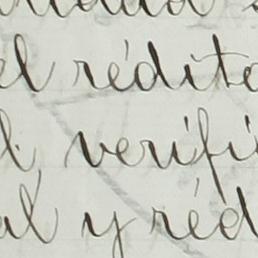 el rédito
l. verifi
al y réd